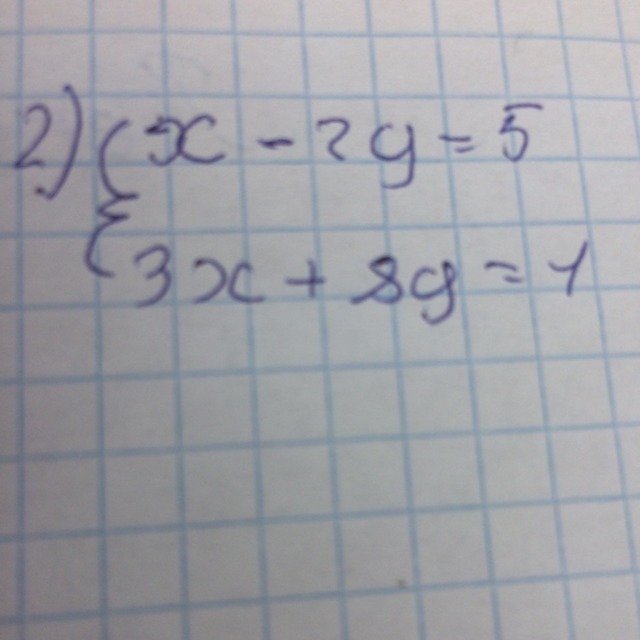 2) { x - 2y = 5
3x + 8y = 1